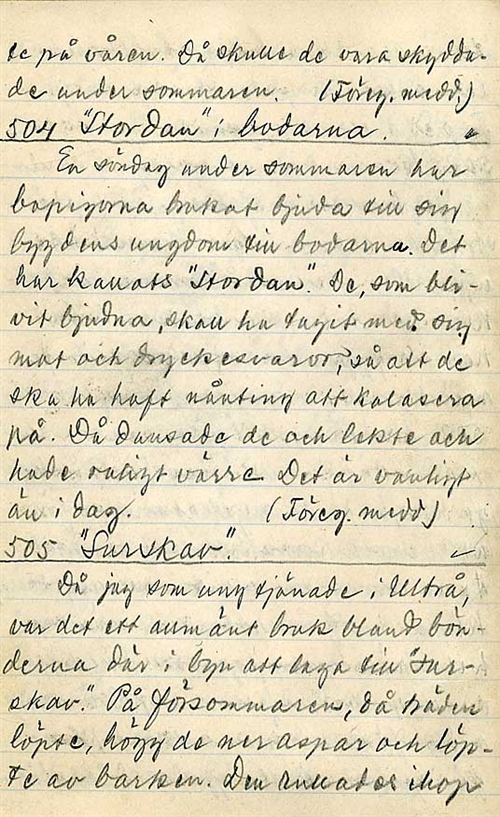 te på våren. Då skulle de vara skydda-
de under sommaren. (Föreg. medd.)
504 "Stordan" i bodarna.
En söndag under sommaren har
bopigorna brukat bjuda till sig
bygdens ungdom till bodarna. Det
har kallats "Stordan". De, som bli-
vit bjudna, skall ha tagit med sig
mat och dryckesvaror, så att de
ska ha haft nånting att kalasera
på. Då dansade de och lekte och
hade roligt värre. Det är vanligt
än i dag. (Föreg. medd.)
505 "Surskav".
Då jag som ung tjänade i Ullrå,
var det ett allmänt bruk bland bön-
derna där i byn att laga till "sur-
skav." På försommaren, då träden
löpte, högg de ner aspar och löp-
te av barken. Den rullades ihop